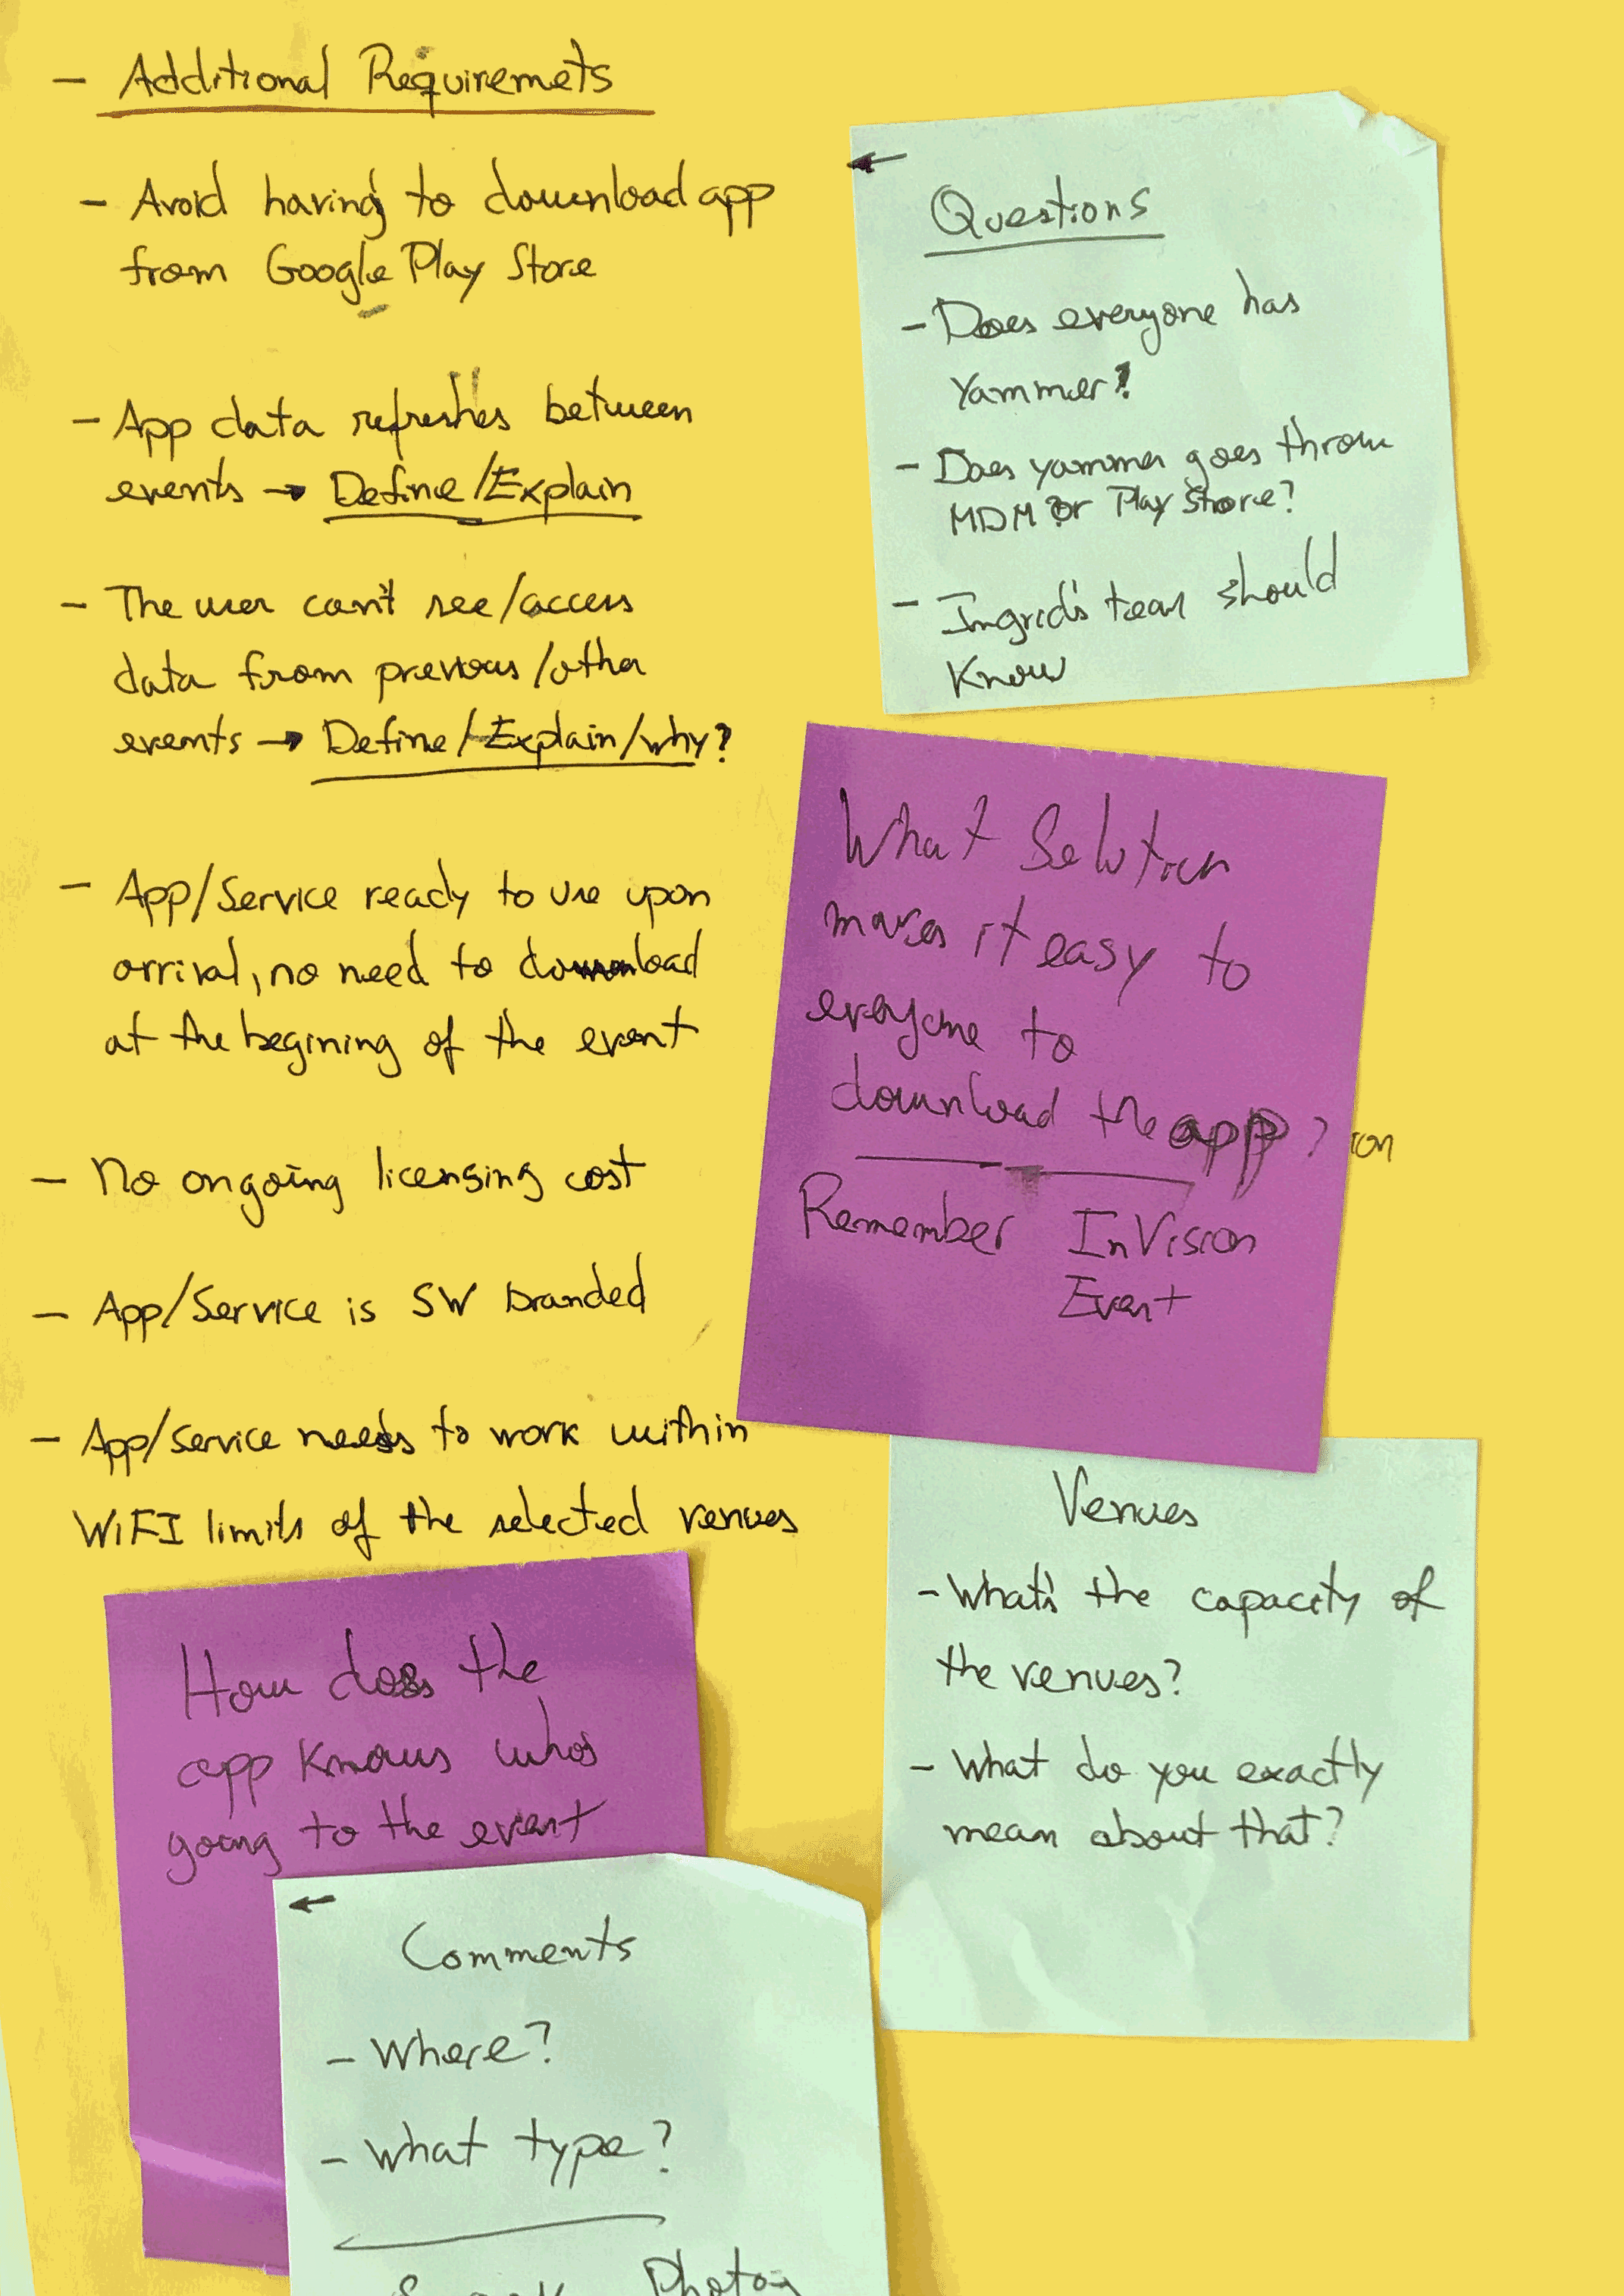 - Additional Requiremets
- Avoid having to download app
from Google Play Store
- App data refreshes between
events → Define/Explain
- The user can't see/access
data from previous/other
events → Define/Explain/why?
- App/Service ready to use upon
arrival, no need to download
at the begining of the event
- No ongoing licensing cost
- App/Service is SW branded
- App/Service needs to work within
WiFI limits of the selected venues
← Questions
- Does everyone has
Yammer?
- Does yammer goes throw
MDM or Play Store?
- Ingrid's team should
Know
What Solution
makes it easy to
everyone to
download the app?
Remember InVision
Event
ion
Venues
- What's the capacity of
the venues?
- What do you exactly
mean about that?
How does the
app knows whos
going to the event
← Comments
- Where?
- What type?